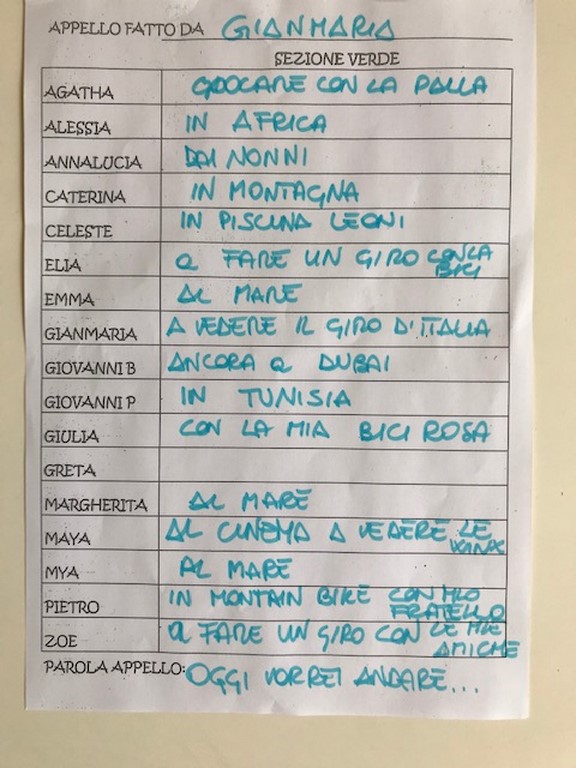 APPELLO FATTO DA GIANMARIA
SEZIONE VERDE
AGATHA GIOCARE CON LA PALLA
ALESSIA IN AFRICA
ANNALUCIA DAI NONNI
CATERINA IN MONTAGNA
CELESTE IN PISCINA LEONI
ELIA a FARE UN GIRO CON LA
BICI
EMMA AL MARE
GIANMARIA A VEDERE IL GIRO D'ITALIA
GIOVANNI B ANCORA a DUBAI
GIOVANNI P IN TUNISIA
GIULIA CON LA MIA BICI ROSA
GRETA
MARGHERITA AL MARE
MAYA AL CINEMA A VEDERE LE
WINX
MYA AL MARE
PIETRO IN MONTAIN BIKE CON MIO
FRATELLO
ZOE a FARE UN GIRO CON LE MIE
AMICHE
PAROLA APPELLO: OGGI VORREI ANDARE...